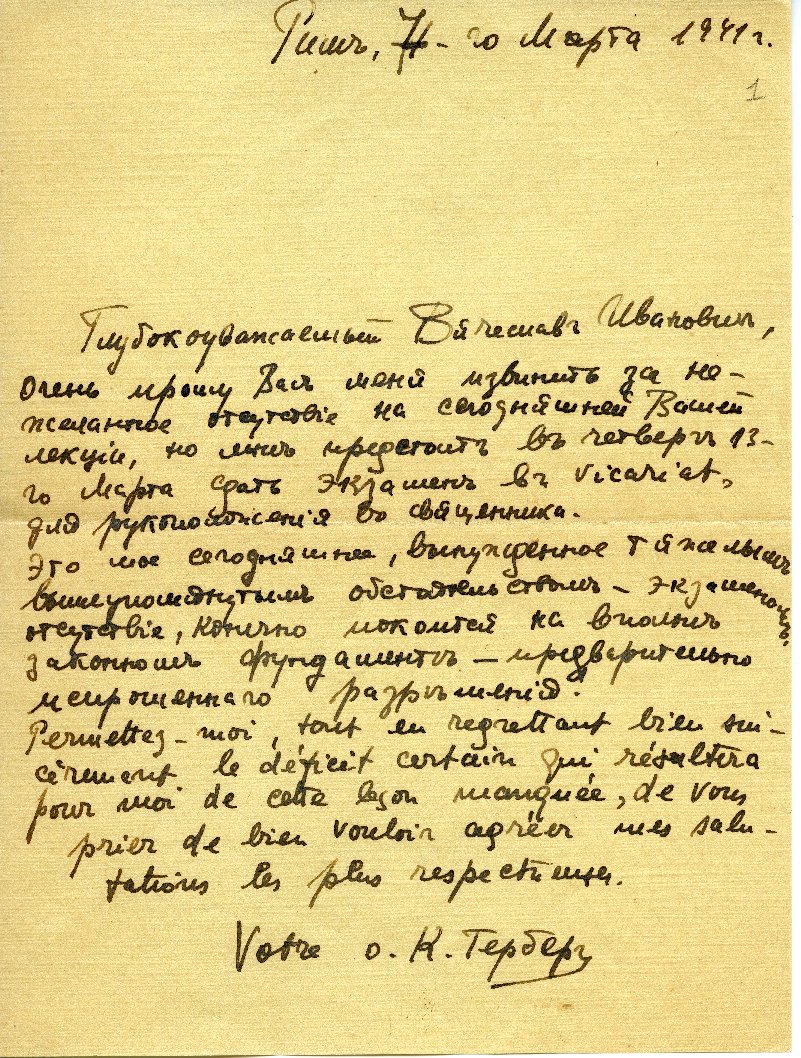 Римъ, 11-го Марта 1941 г.
1
Глубокоуважаемый Вячеславъ Ивановичъ,
Очень прошу Васъ меня извинить за не-
желанное отсутствіе на сегодняшней Вашей
лекціи, но мнѣ предстоитъ въ четвергъ 13-
го Марта сдать экзаменъ въ Vicariat,
для рукоположенія во священника.
Это мое сегодняшнее, вынужденное тяжелымъ
вышеупомянутымъ обстоятельствомъ – экзаменомъ,
отсутствіе, конечно покоится на вполнѣ
законномъ фундаментѣ – предварительно
испрошеннаго разрѣшенія.
Permettez-moi, tout en regrettant bien sin-
cèrement le déficit certain qui résultera
pour moi de cette leçon manquée, de vous
prier de bien vouloir agréer mes salu-
tations les plus respectueuses.
Votre о. К. Герберъ